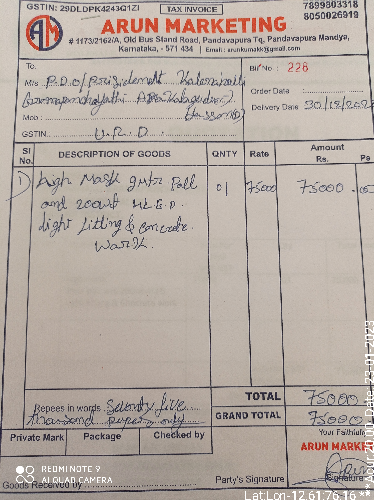 GSTIN: 29DLDPK4243Q1ZI
TAX INVOICE
7899803318
8050026919
AM
ARUN MARKETING
# 1173/2162/A, Old Bus Stand Road, Pandavapura Tq, Pandavapura Mandya,
Karnataka, - 571 434 | Email: arunkumakk@gmail.com
To.
Bill No: 226
M/s P.D.O/
Order Date :
Mob :
Delivery Date 30/12/202
GSTIN U.R.D.
Sl No. DESCRIPTION OF GOODS QNTY Rate Amount Rs. Ps
1) high Mask Poll 01 75000 75000
and 200wt L.E.D.
Light fitting & concrete
Work.
TOTAL 75000
Repees in words Seventy five
thousand rupees only
GRAND TOTAL 75000
Private Mark Package Checked by
Your Faithfull
ARUN MARKE
REDMI NOTE 9
AI QUAD CAMERA
Goods Received by
Party's Signature
Signature
Lat Lon-12.61,76.16
Date 23-01-2023